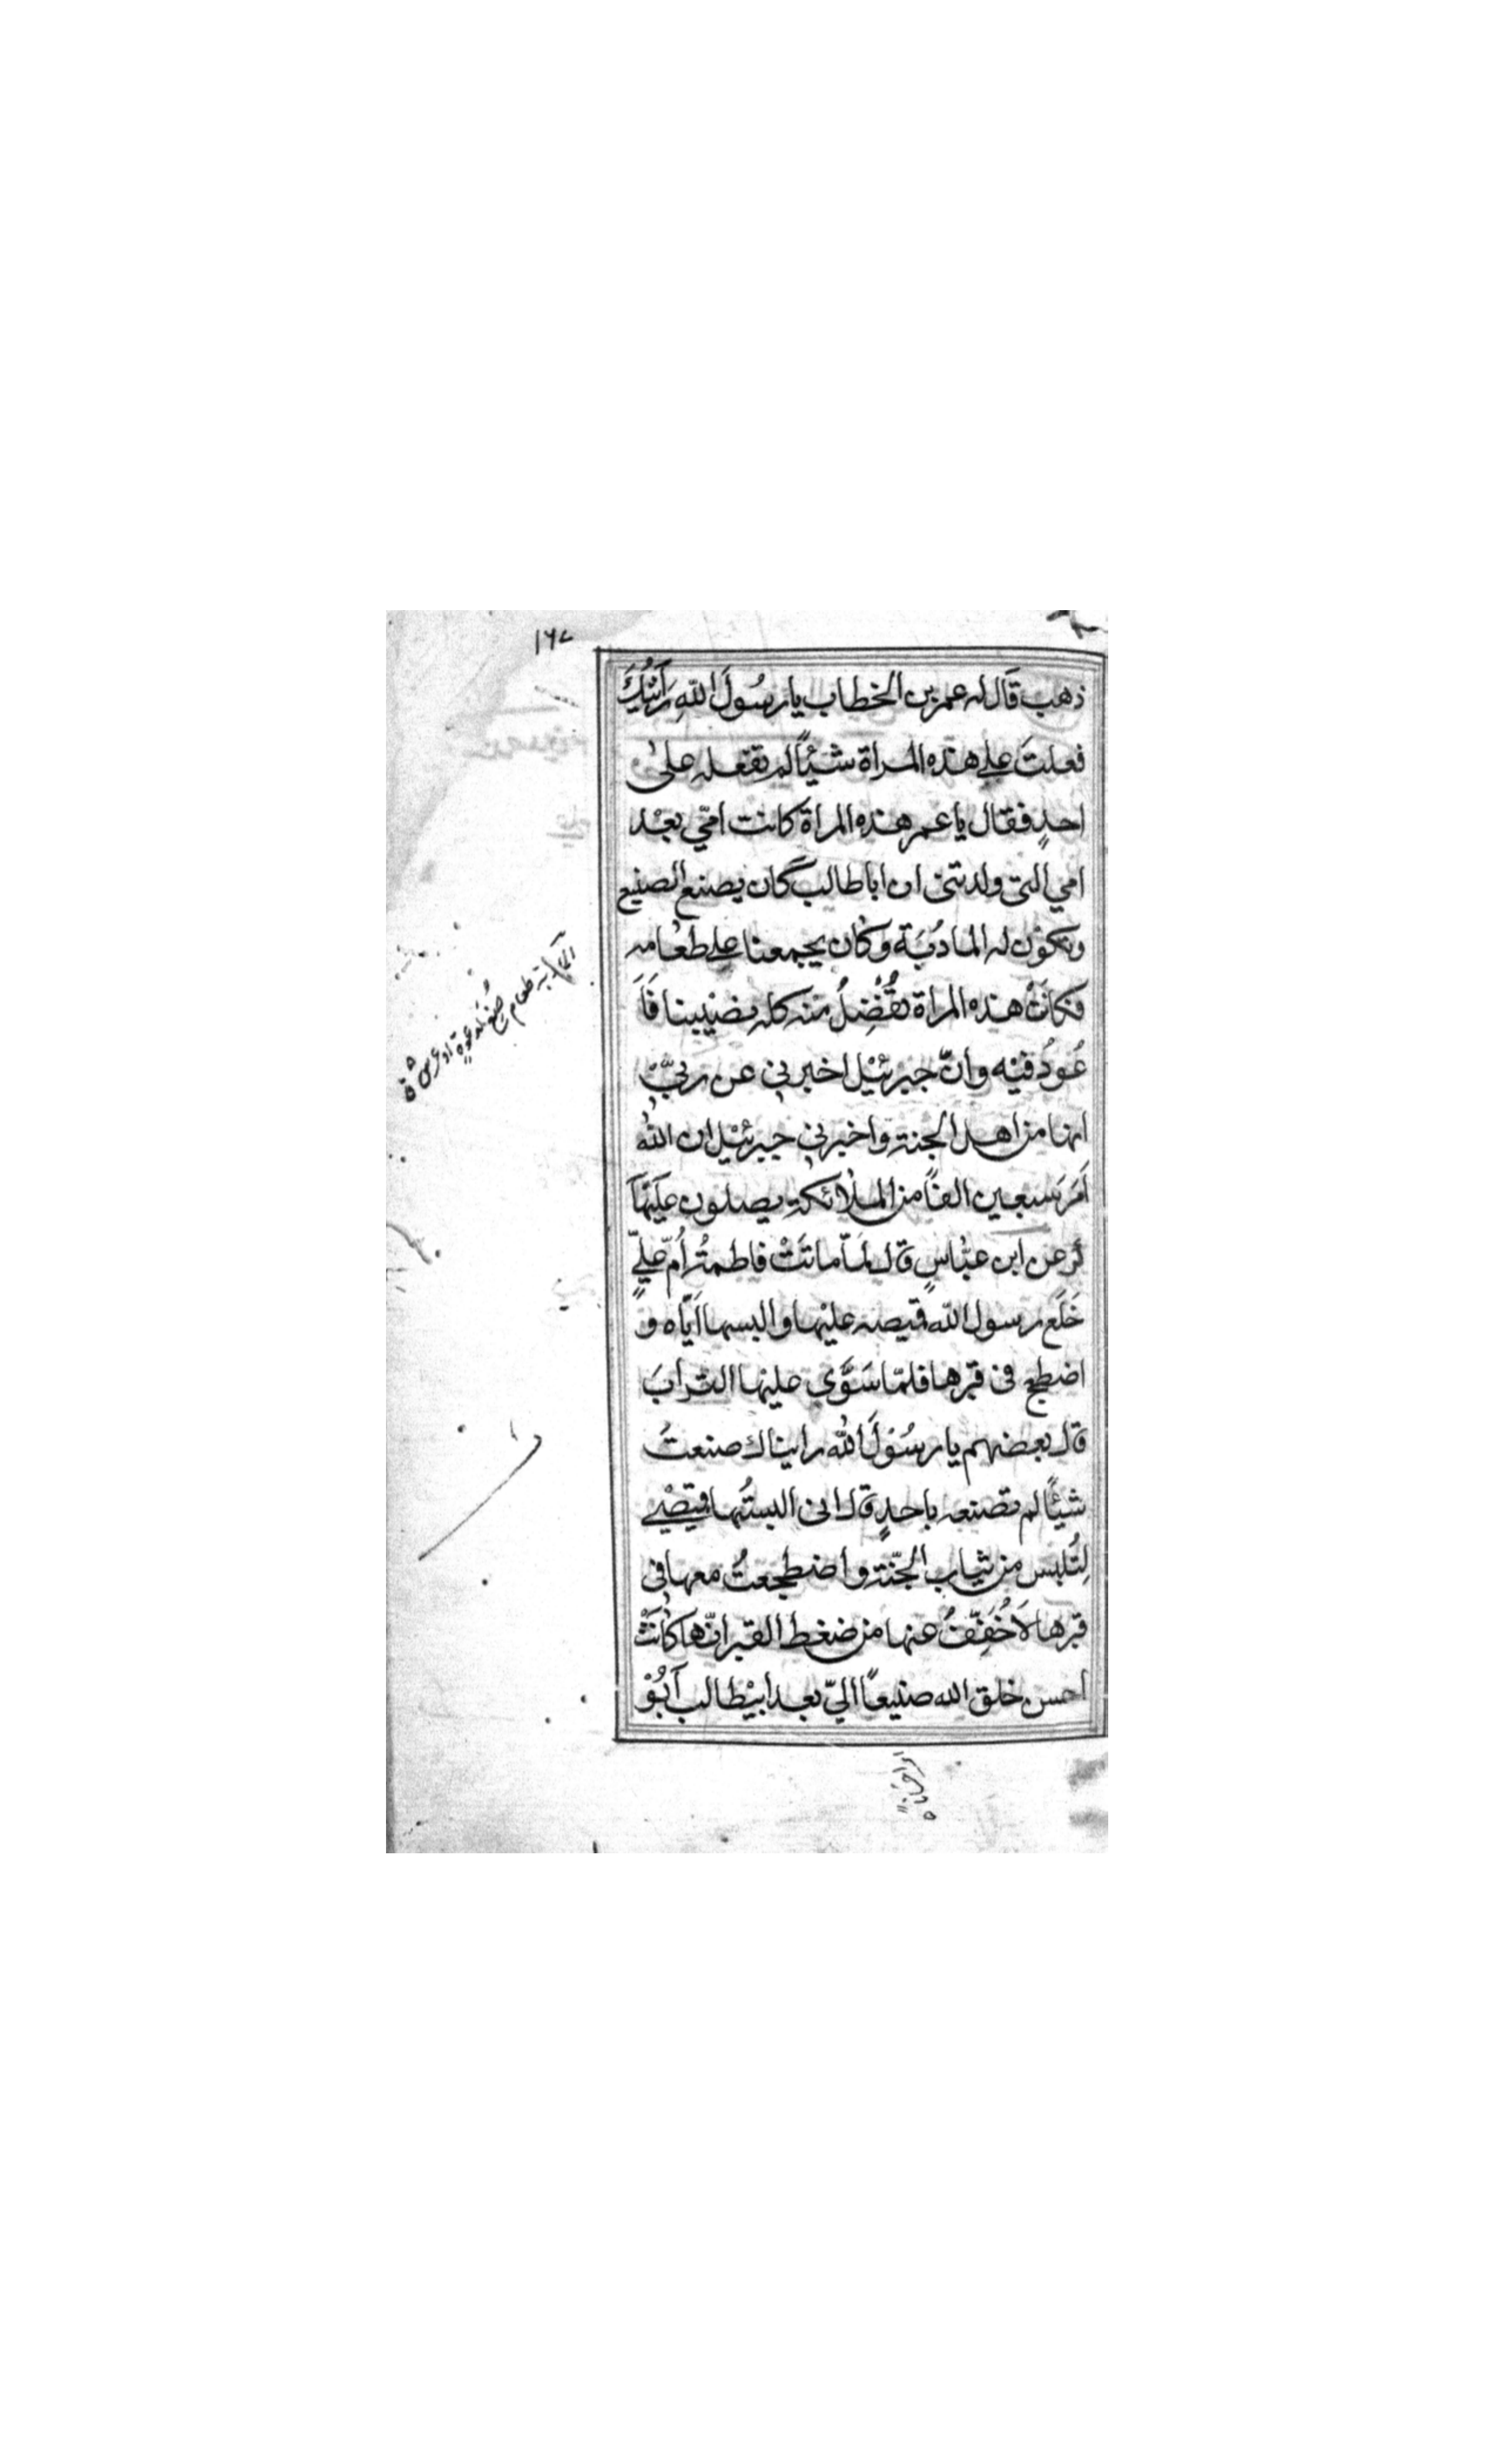 ١٦٧
ذهب قَال له عمر بن الخطاب يا رسُولَ اللّهِ رَأَيْتُكَ
فعلتَ علی هذه المراة شيئًا لم تفعله علیٰ
احدٍ فقال يا عمر هذه المراة كانت امّي بعْد
امي التی ولدتنی ان ابا طالب كان يصنع الصنيع
وتكوْن له المادُبَة وكان يجمعنا علی طعامه
فكانَتْ هذه المراة تُفْضِلُ منه كله نصيبنا فَاَ
عُودُ فيْه وانّ جبرئيْل اخبرني عن ربيّ
انها من اهل الجنة واخبرني جبرئيْل ان اللّٰه
اَمَرَ بسبعين الفًا من الملائكةِ يصلون عليْهَا
ڶر عن ابن عبّاسٍ قال لمّا ماتَتْ فاطمةُ اُمّ عليٍّ
خَلَعَ رسول اللّه قميصه عليْها والبسها اَيّاه و
اضطجع فی قبرها فلمّا سَوَّي عليْها الترابَ
قال بعضهم يا رسُوْلَ اللّٰه رايناك صنعتَ
شيئًا لم تصنعه باحدٍ قال انی البستُها قميْصِی
لِتُلبس من ثياب الجنّة واضطجعتُ معها فی
قبرها لاَخُفِّفُ عنها من ضغط القبر انّها كانَتْ
احسن خلق اللّه صنيعًا اليّ بعد ابيْطالب اَبُوْ
طعام صُنِع لدعوة او عرس